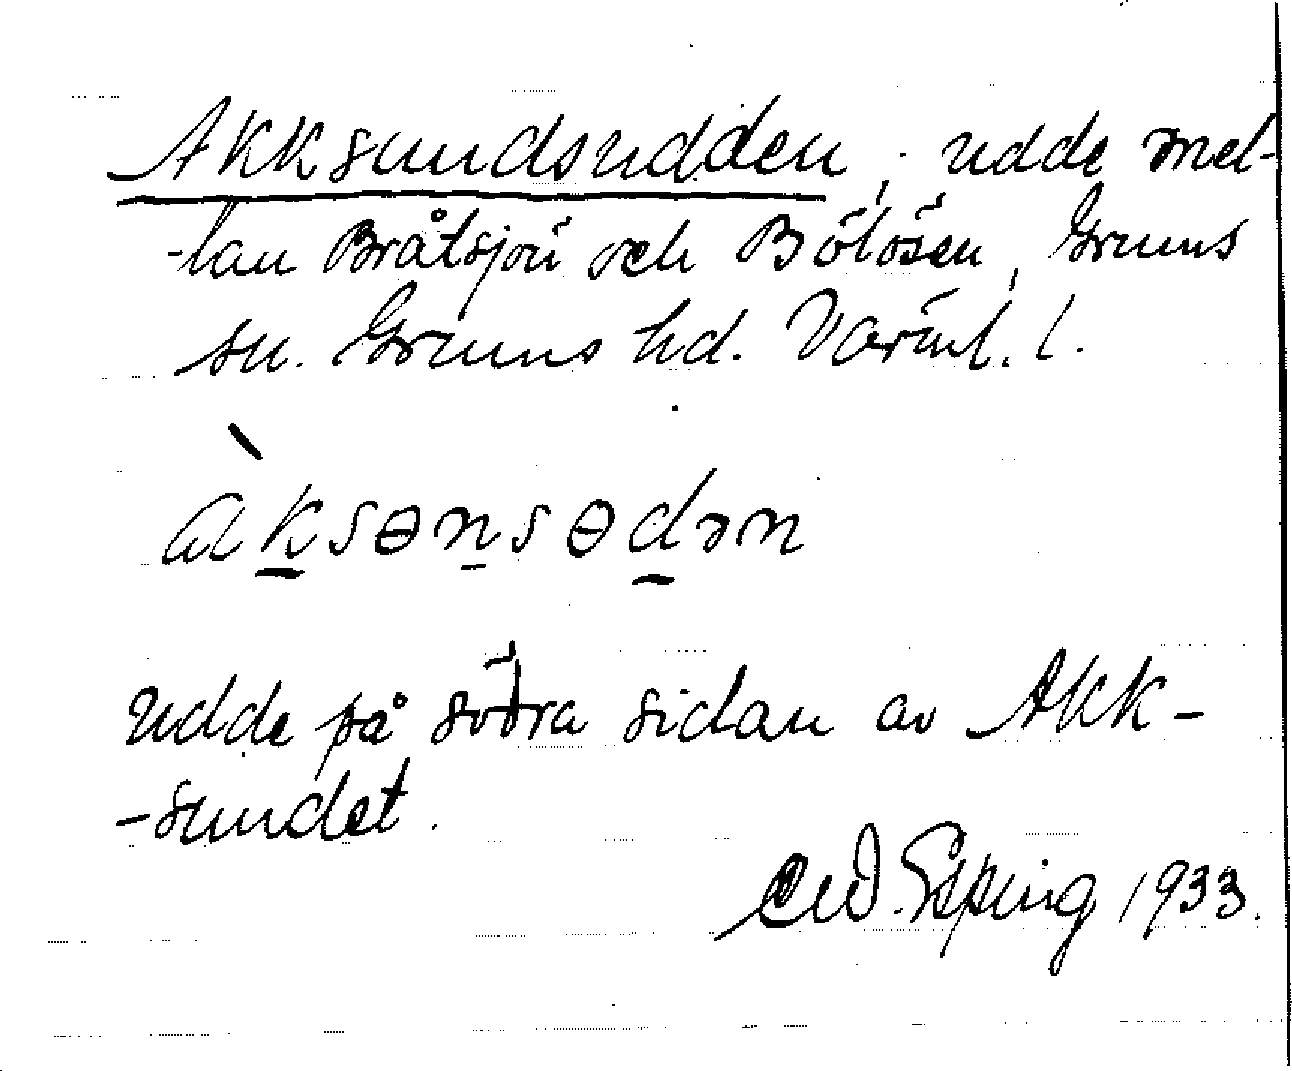 Akksundsudden, udde mel-
-lan Bråtsjön och Bölösen, Grums
sn. Grums hd. Värml. l.
àksɵnsɵdən
Udde på södra sidan av Akk-
-sundet.
Epping 1933.